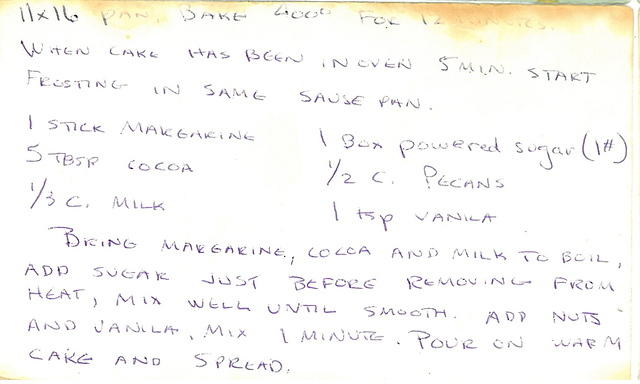 11x16 PAN. BAKE 400° FOR 12 MINUTES.
WHEN CAKE HAS BEEN IN OVEN 5 MIN. START
FROSTING IN SAME SAUSE PAN.
1 STICK MARGARINE
5 TBSP COCOA
1/3 C. MILK
1 BOX powered sugar (1#)
1/2 C. PECANS
1 tsp VANILA
BRING MARGARINE, COCOA AND MILK TO BOIL,
ADD SUGAR JUST BEFORE REMOVING FROM
HEAT, MIX WELL UNTIL SMOOTH. ADD NUTS
AND VANILA, MIX 1 MINUTE. POUR ON WARM
CAKE AND SPREAD.